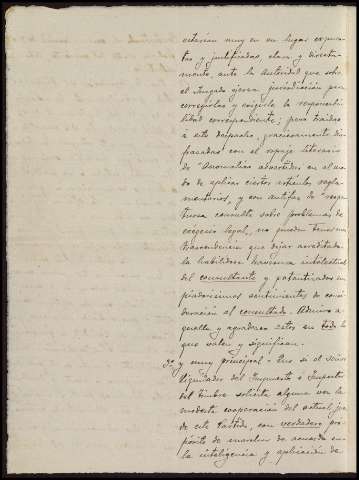 estarían muy en su lugar expues-
tas y justificadas, clara y directa-
mente, ante la Autoridad que sobre
el Juzgado ejerza jurisdicción para
corregirlas y exigirle la responsabi-
lidad correspondiente; pero traídas
á este despacho, graciosamente dis-
frazadas con el ropaje literario
de "Anomalías advertidas en el mo-
do de aplicar ciertos artículos regla-
mentarios, y con antifaz de "respe-
tuosa consulta sobre problemas de
exégesis legal, no pueden tener más
trascendencia que dejar acreditada
la habilidosa travesura intelectual
del consultante y patentizados sus
piadosísimos sentimientos de consi-
deración al consultado. Admiro a-
quella y agradezco estos en todo lo
que valen y significan.
3º y muy principal - Que si el Señor
Liquidador del Impuesto é Inspector
del timbre solicita alguna vez la
modesta cooperación del actual juez
de este Partido, con verdadero pro-
pósito de marchar de acuerdo en
la inteligencia y aplicación de